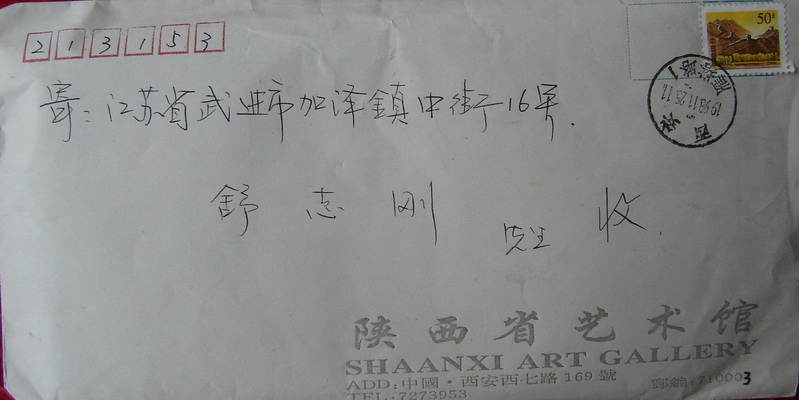 213153
50分
西安
1998.11.25.11
寄:江苏省武进市加泽鎮中街16号.
舒志刚 先生 收
陕西省艺术馆
SHAANXI ART GALLERY
ADD:中國·西安西七路169號 郵編:710003
TEL:7273953